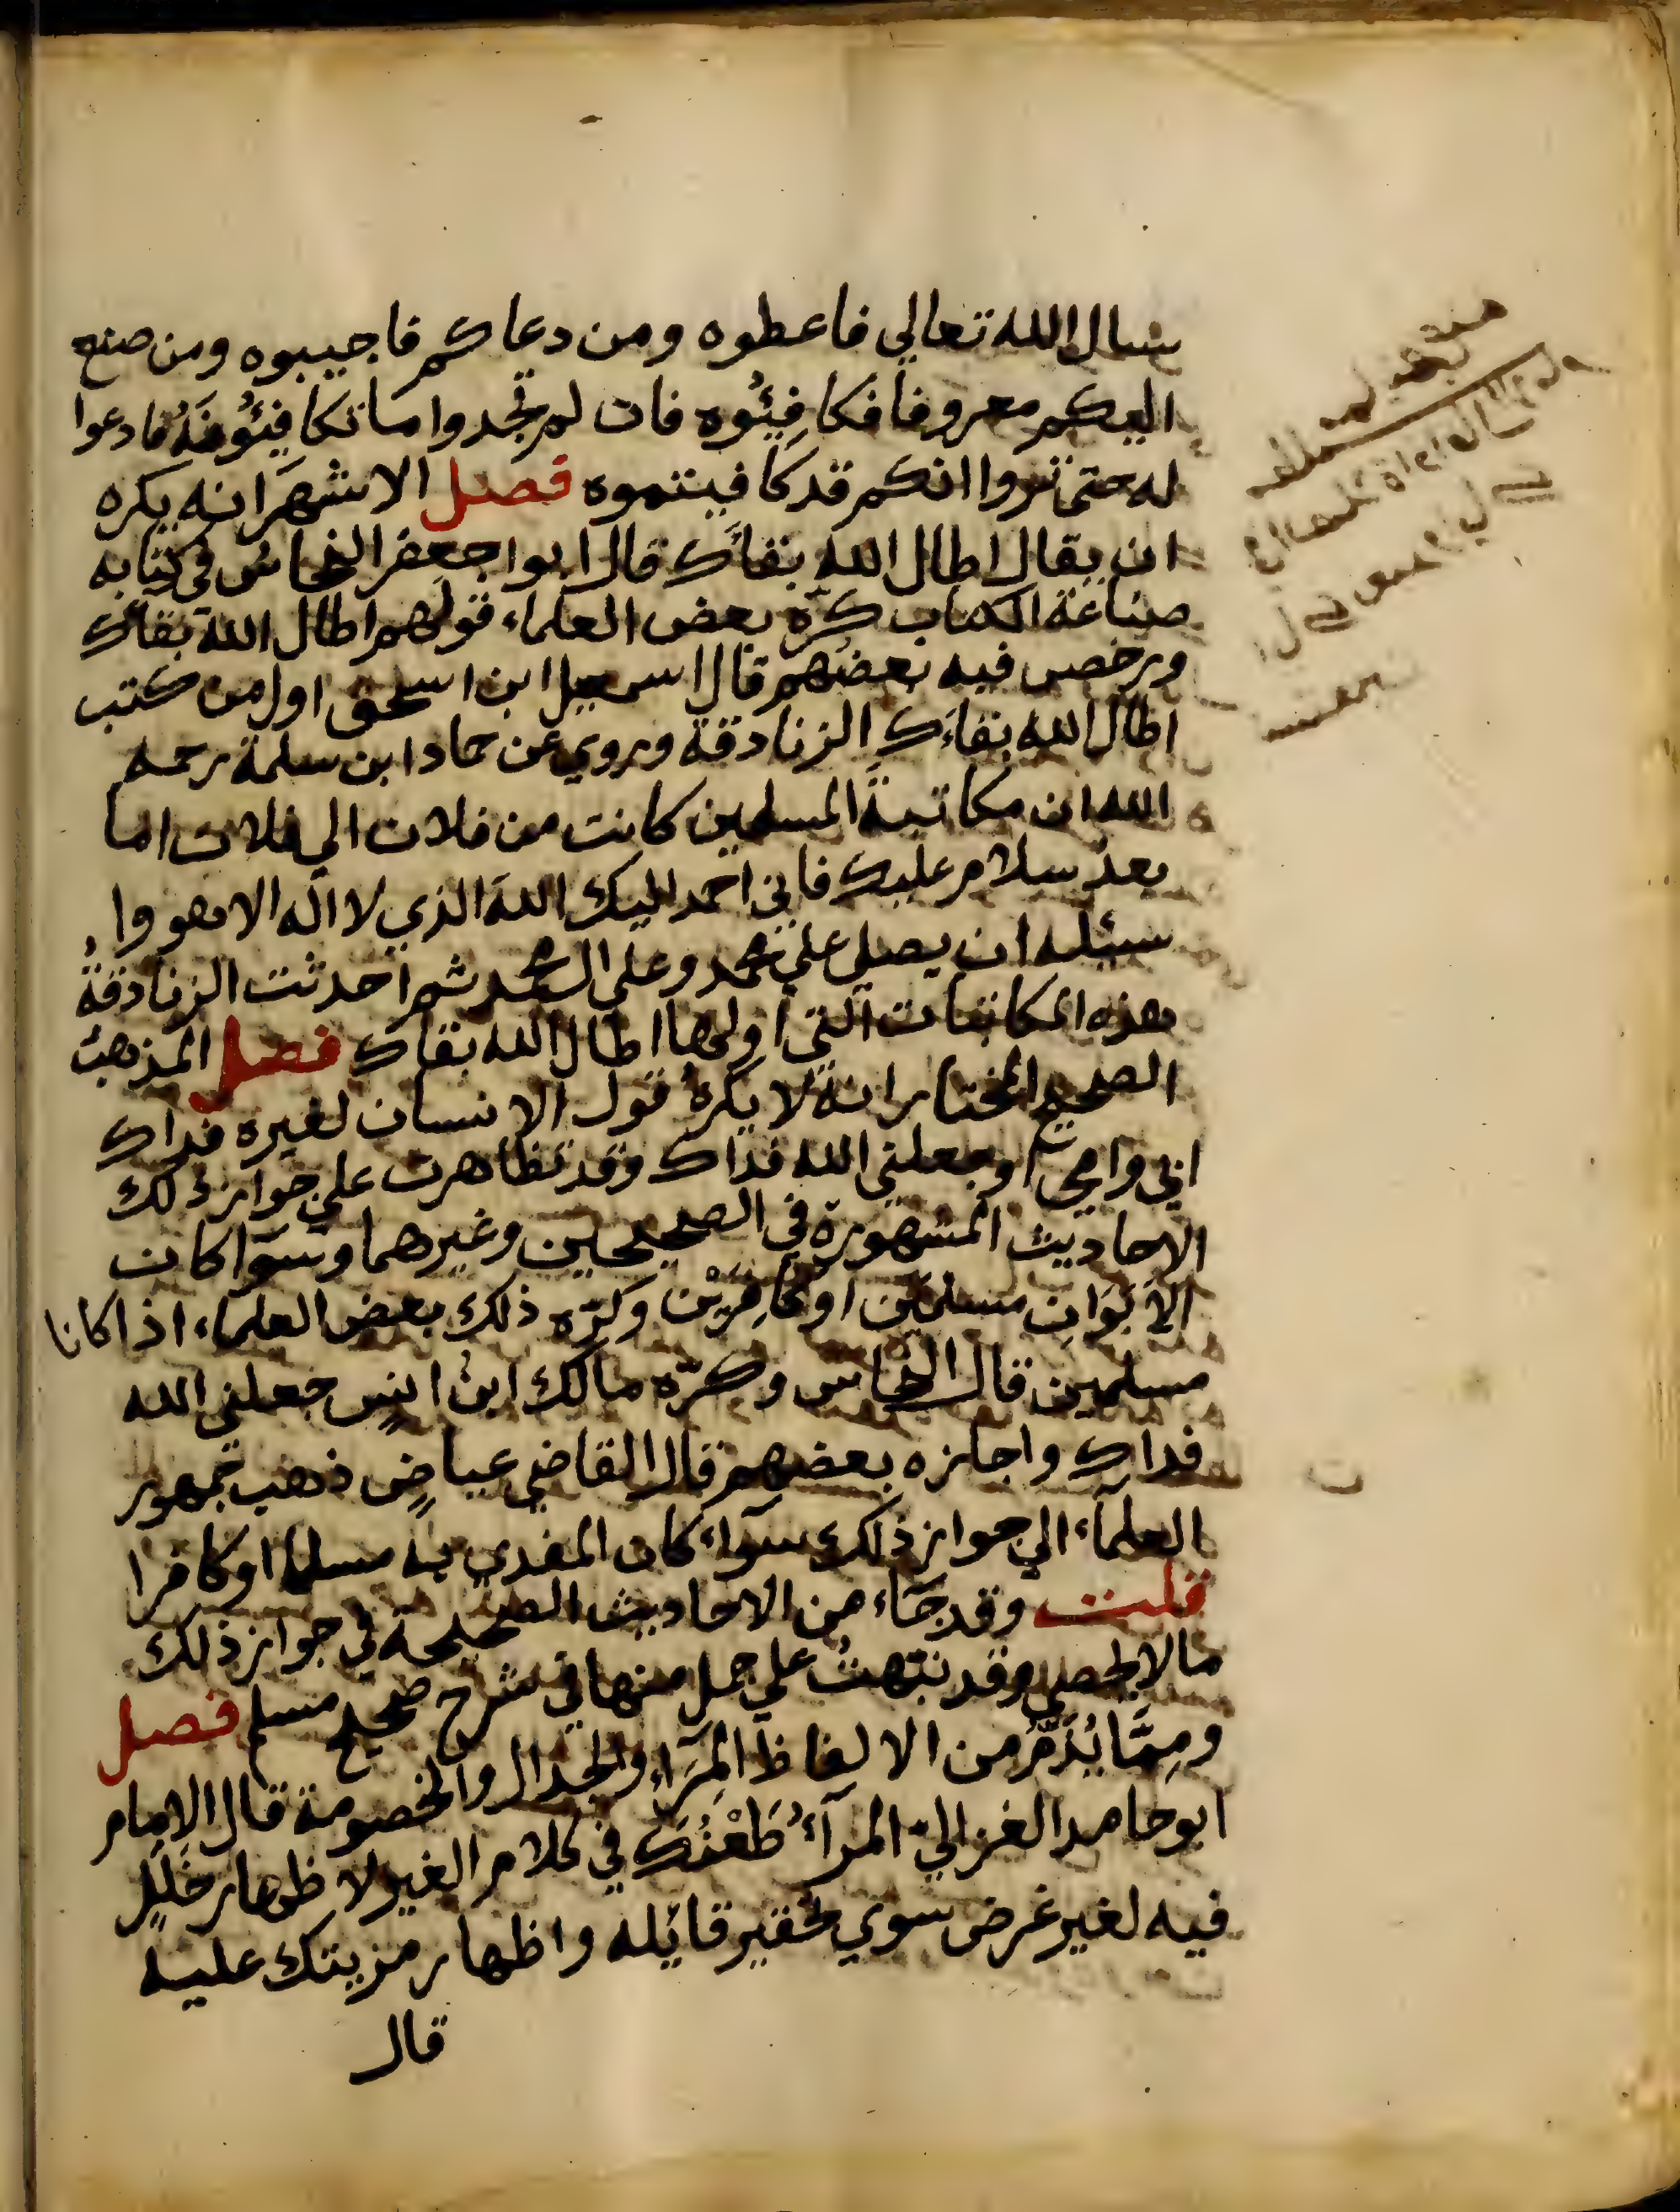 سال الله تعالي فاعطوه ومن دعاكم فاجيبوه ومن صنع
اليكم معروفا فكافِئُوه فان لم تجدوا ما تكافِئُونَهُ فادعوا
له حتى تروا انكم قد كافيتموه فصل الاشهَر انه يكره
ان يقال اطال الله بقاك قال ابوا جعفر النحاسُ في كتابه
صناعة الكتاب كَرِه بعض العلماء قولهم اطال الله بقاك
ورخص فيه بعضهم قال اسمعيل ابن اسحق اول من كتب
اطال الله بقاءَك الزنادقة وروي عن حماد ابن سلمة رحمه
الله ان مكاتبةَ المسلمين كانت من فلان الي فلان اما
بعدُ سلام عليك فاني احمد اليك اللهَ الذي لا اله الا هو وا
سئله ان يصلي علي محمد وعلي ال محمد ثم احدثت الزنادقةُ
هذه المكاتبات التي اولها اطال الله بقاك فصل المذهبُ
الصحيح المختار انه لا يكرهُ قول الانسان لغيره فداك
ابي وامي او جعلني الله فداك وقد تظاهرت علي جواز ذلك
الاحاديث المشهورة في الصحيحين وغيرهما وسوا كان
الاَبَوَانِ مسلمَين او كافِرَيْن وكَرِه ذلك بعض العلماء اذا كانا
مسلمين قال النحاس وكرِه مالك ابنُ انسٍ جعلني الله
فداك واجازه بعضهم قال القاضي عياضٍ ذهب جمهور
العلماء الي جواز ذلك سوآء كان المفدي به مسلما او كافرا
قلت وقد جَاء من الاحاديث الصحيحة في جواز ذلك
مالا يحصي وقد نبّهتُ علي جمل منها في شرح صحيح مسلم فصل
ومِمَّا يُذَمُّ من الالفاظ المِرَاءِ والجدال والخصومة قال الامام
ابو حامد الغزاليّ المرآءُ طَعْنُكَ في كلام الغير لاظهار خَللٍ
فيه لغير غرض سوي تحقير قائله واظهار مزيتك عليه
قال